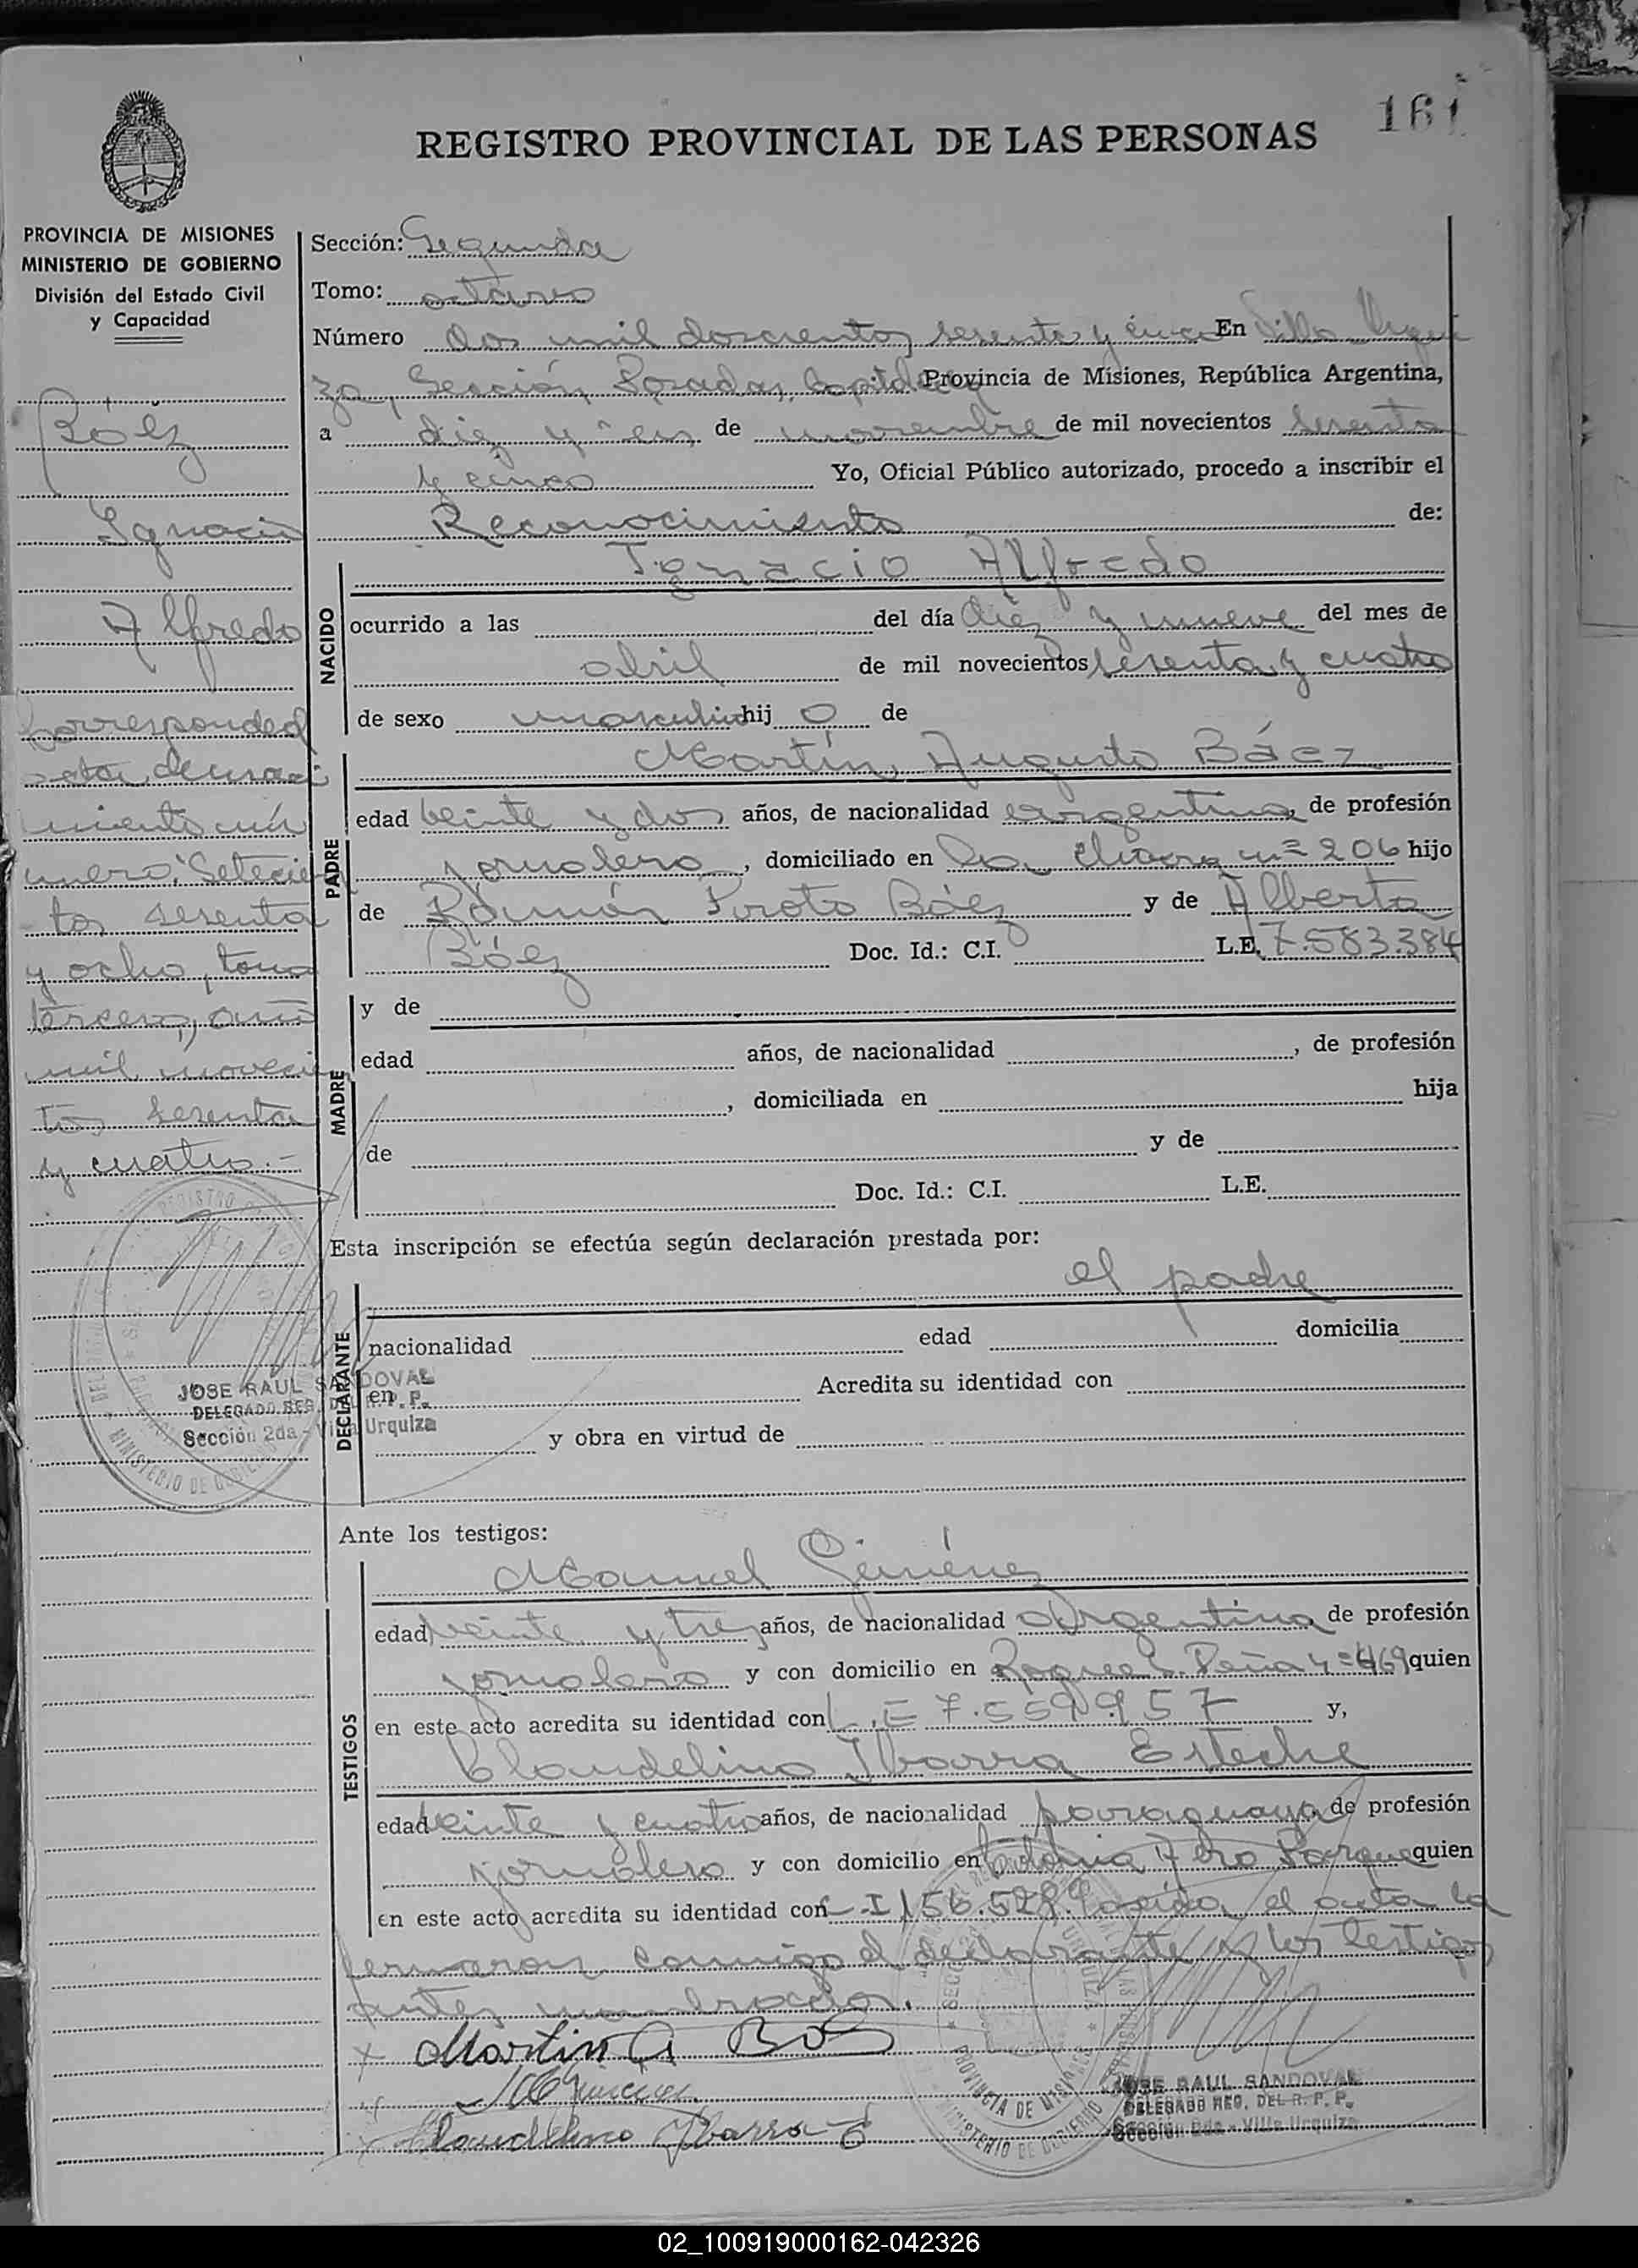 161
REGISTRO PROVINCIAL DE LAS PERSONAS
PROVINCIA DE MISIONES
MINISTERIO DE GOBIERNO
División del Estado Civil
y Capacidad
Báez
Ignacio
Alfredo
Corresponde al
acta de naci
miento nú
mero: Setecien
tos sesenta
y ocho, tomo
tercero, año
mil novecien
tos sesenta
y cuatro.-
JOSE RAUL SANDOVAL
DELEGADO REG. DEL R. P. P.
Sección 2da - Villa Urquiza
Sección: Segunda
Tomo: octavo
Número dos mil doscientos sesenta y En Villa Urqui
za, Sección, Posadas, Capital Provincia de Misiones, República Argentina,
a diez y de noviembre de mil novecientos sesenta
y cinco Yo, Oficial Público autorizado, procedo a inscribir el
Reconocimiento de:
NACIDO
Ignacio Alfredo
ocurrido a las del día diez y nueve del mes de
abril de mil novecientos sesenta y cuatro
de sexo masculino hij o de
PADRE
Martín Augusto Báez
edad veinte y dos años, de nacionalidad argentina, de profesión
jornalero, domiciliado en la chacra nº 206 hijo
de Ramón Báez y de Alberta
Báez Doc. Id.: C.I. L.E. 7.583.384
MADRE
y de
edad años, de nacionalidad , de profesión
, domiciliada en hija
de y de
Doc. Id.: C.I. L.E.
Esta inscripción se efectúa según declaración prestada por:
el padre
DECLARANTE
nacionalidad edad domicilia
en Acredita su identidad con
y obra en virtud de
Ante los testigos:
TESTIGOS
Manuel Giménez
edad veinte y tres años, de nacionalidad Argentina de profesión
jornalero y con domicilio en Roque S. Peña 469 quien
en este acto acredita su identidad con L.E 7.559.957 y,
Claudelino Ibarra Esteche
edad veinte y cuatro años, de nacionalidad paraguaya de profesión
jornalero y con domicilio en Colonia Aero Parque quien
en este acto acredita su identidad con C.I 156.529. Leída el acta la
firmaron conmigo el declarante y los testigos
antes nombrados.
Martin A
Claudelino Ybarra E
JOSE RAUL SANDOVAL
DELEGADO REG. DEL R. P. P.
Sección 2da - Villa Urquiza
02_100919000162-042326